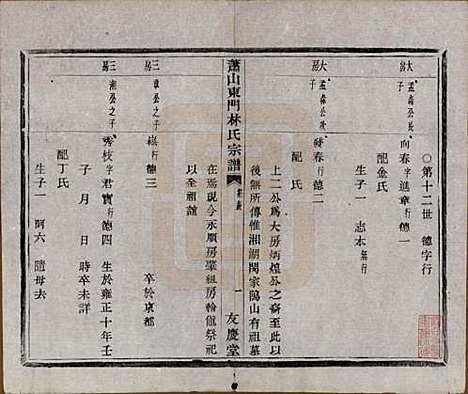 〇第十二世 德字行
大房
孟森公長子
向春字進章行德一
配金氏
生子一 志本無行
大房
孟森公次子
發春行德二
配氏
上二公為大房炳煌公之裔至此以
後無所傳惟湘湖閔家闕山有祖墓
在焉現今永順房肇祖房輪値祭祀
以全祖誼
蕭山東門林氏宗譜
一
友慶堂
三房
公之子
行德三
卒於京都
三房
公之子
秀枝字君實行德四 生於雍正十年壬
子 月 日 時卒未詳
配丁氏
生子一 阿六 隨母去